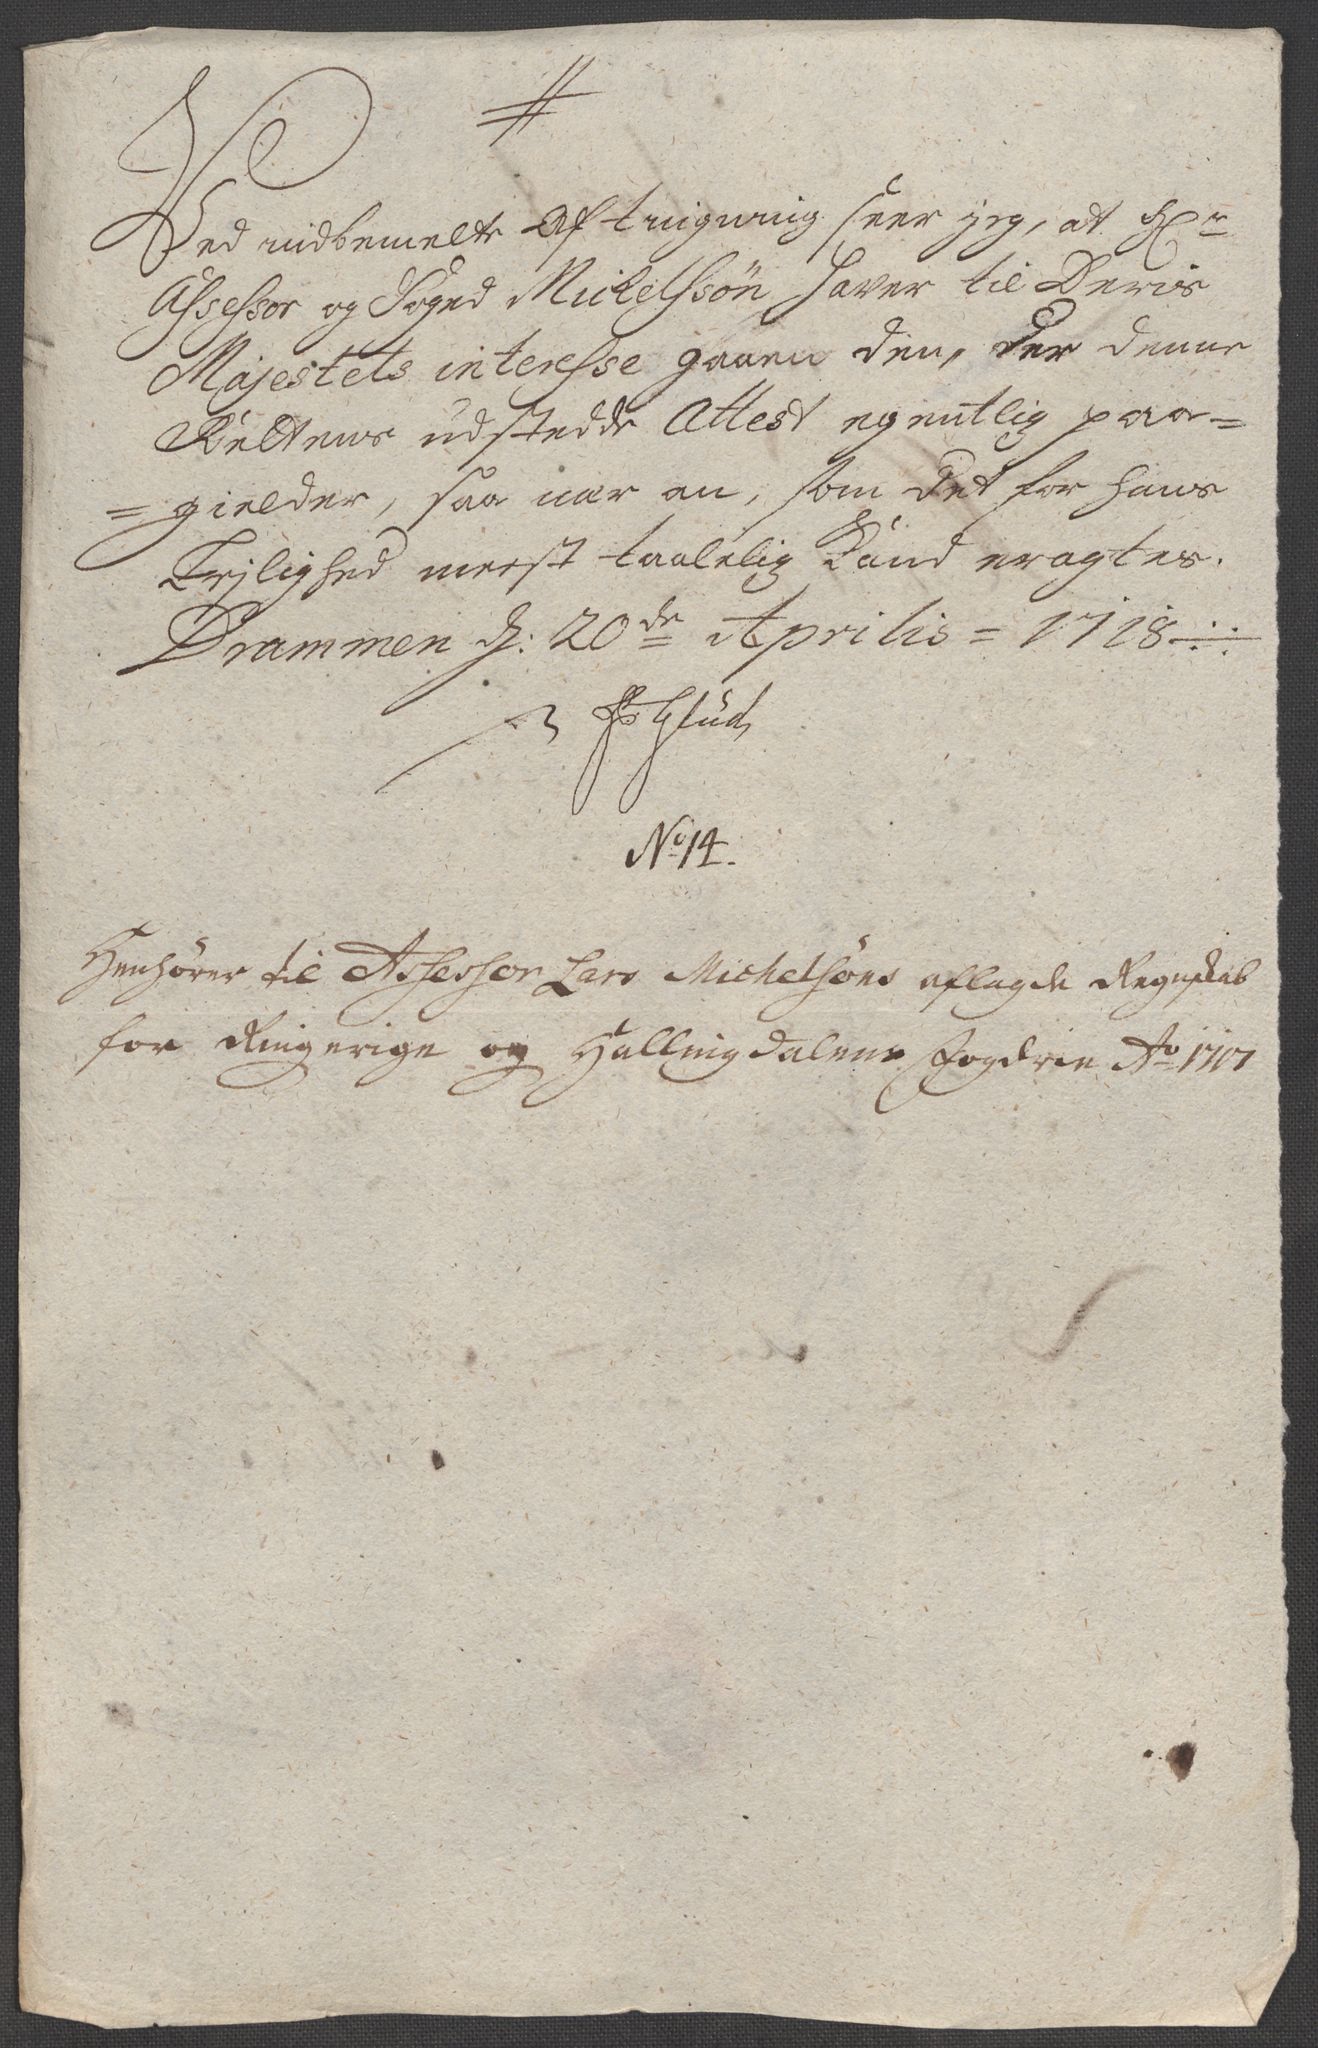 Ved midbemelte Aftingning seer jeg, at Hr
Assessor og Foged Mickelssön haver til Deris
Majestets interesse gaaen den, der denne
Rettens udstedde Attest egentlig paa=
=gielder, saa nær an, som det for hans
Lejlighed meest taalelig Kand eragtes.
Drammen d: 20de Aprilis = 1718
Glud
No 14.
Henhörer til Assessor Lars Michelsöns aflagde Regnskab
for Ringerige og Hallingdalens Fogdrie Ao 1717